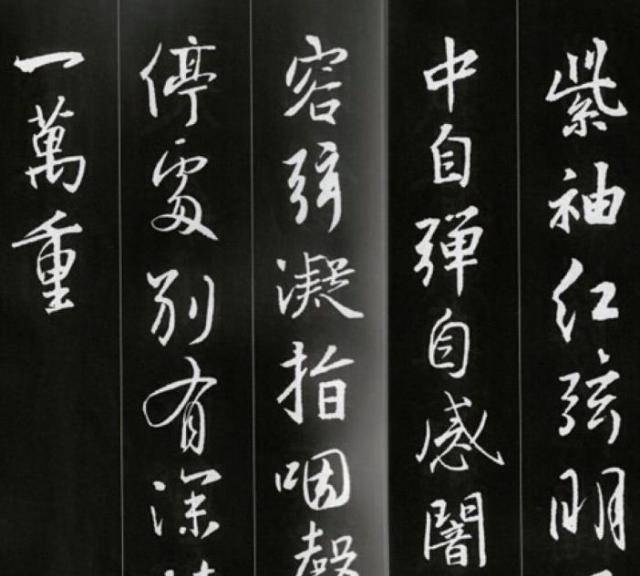 紫袖红弦明
中自弹自感闇
容弦凝指咽声
停处别有深
一萬重